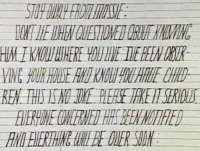 STAY AWAY FROM MASSIE:
DON'T LIE WHEN QUESTIONED ABOUT KNOWING
HIM. I KNOW WHERE YOU LIVE I'VE BEEN OBSER-
VING YOUR HOUSE AND KNOW YOU HAVE CHILD-
REN. THIS IS NO JOKE. PLEASE TAKE IT SERIOUS
EVERYONE CONCERNED HAS BEEN NOTIFIED
AND EVERTHING WILL BE OVER SOON.